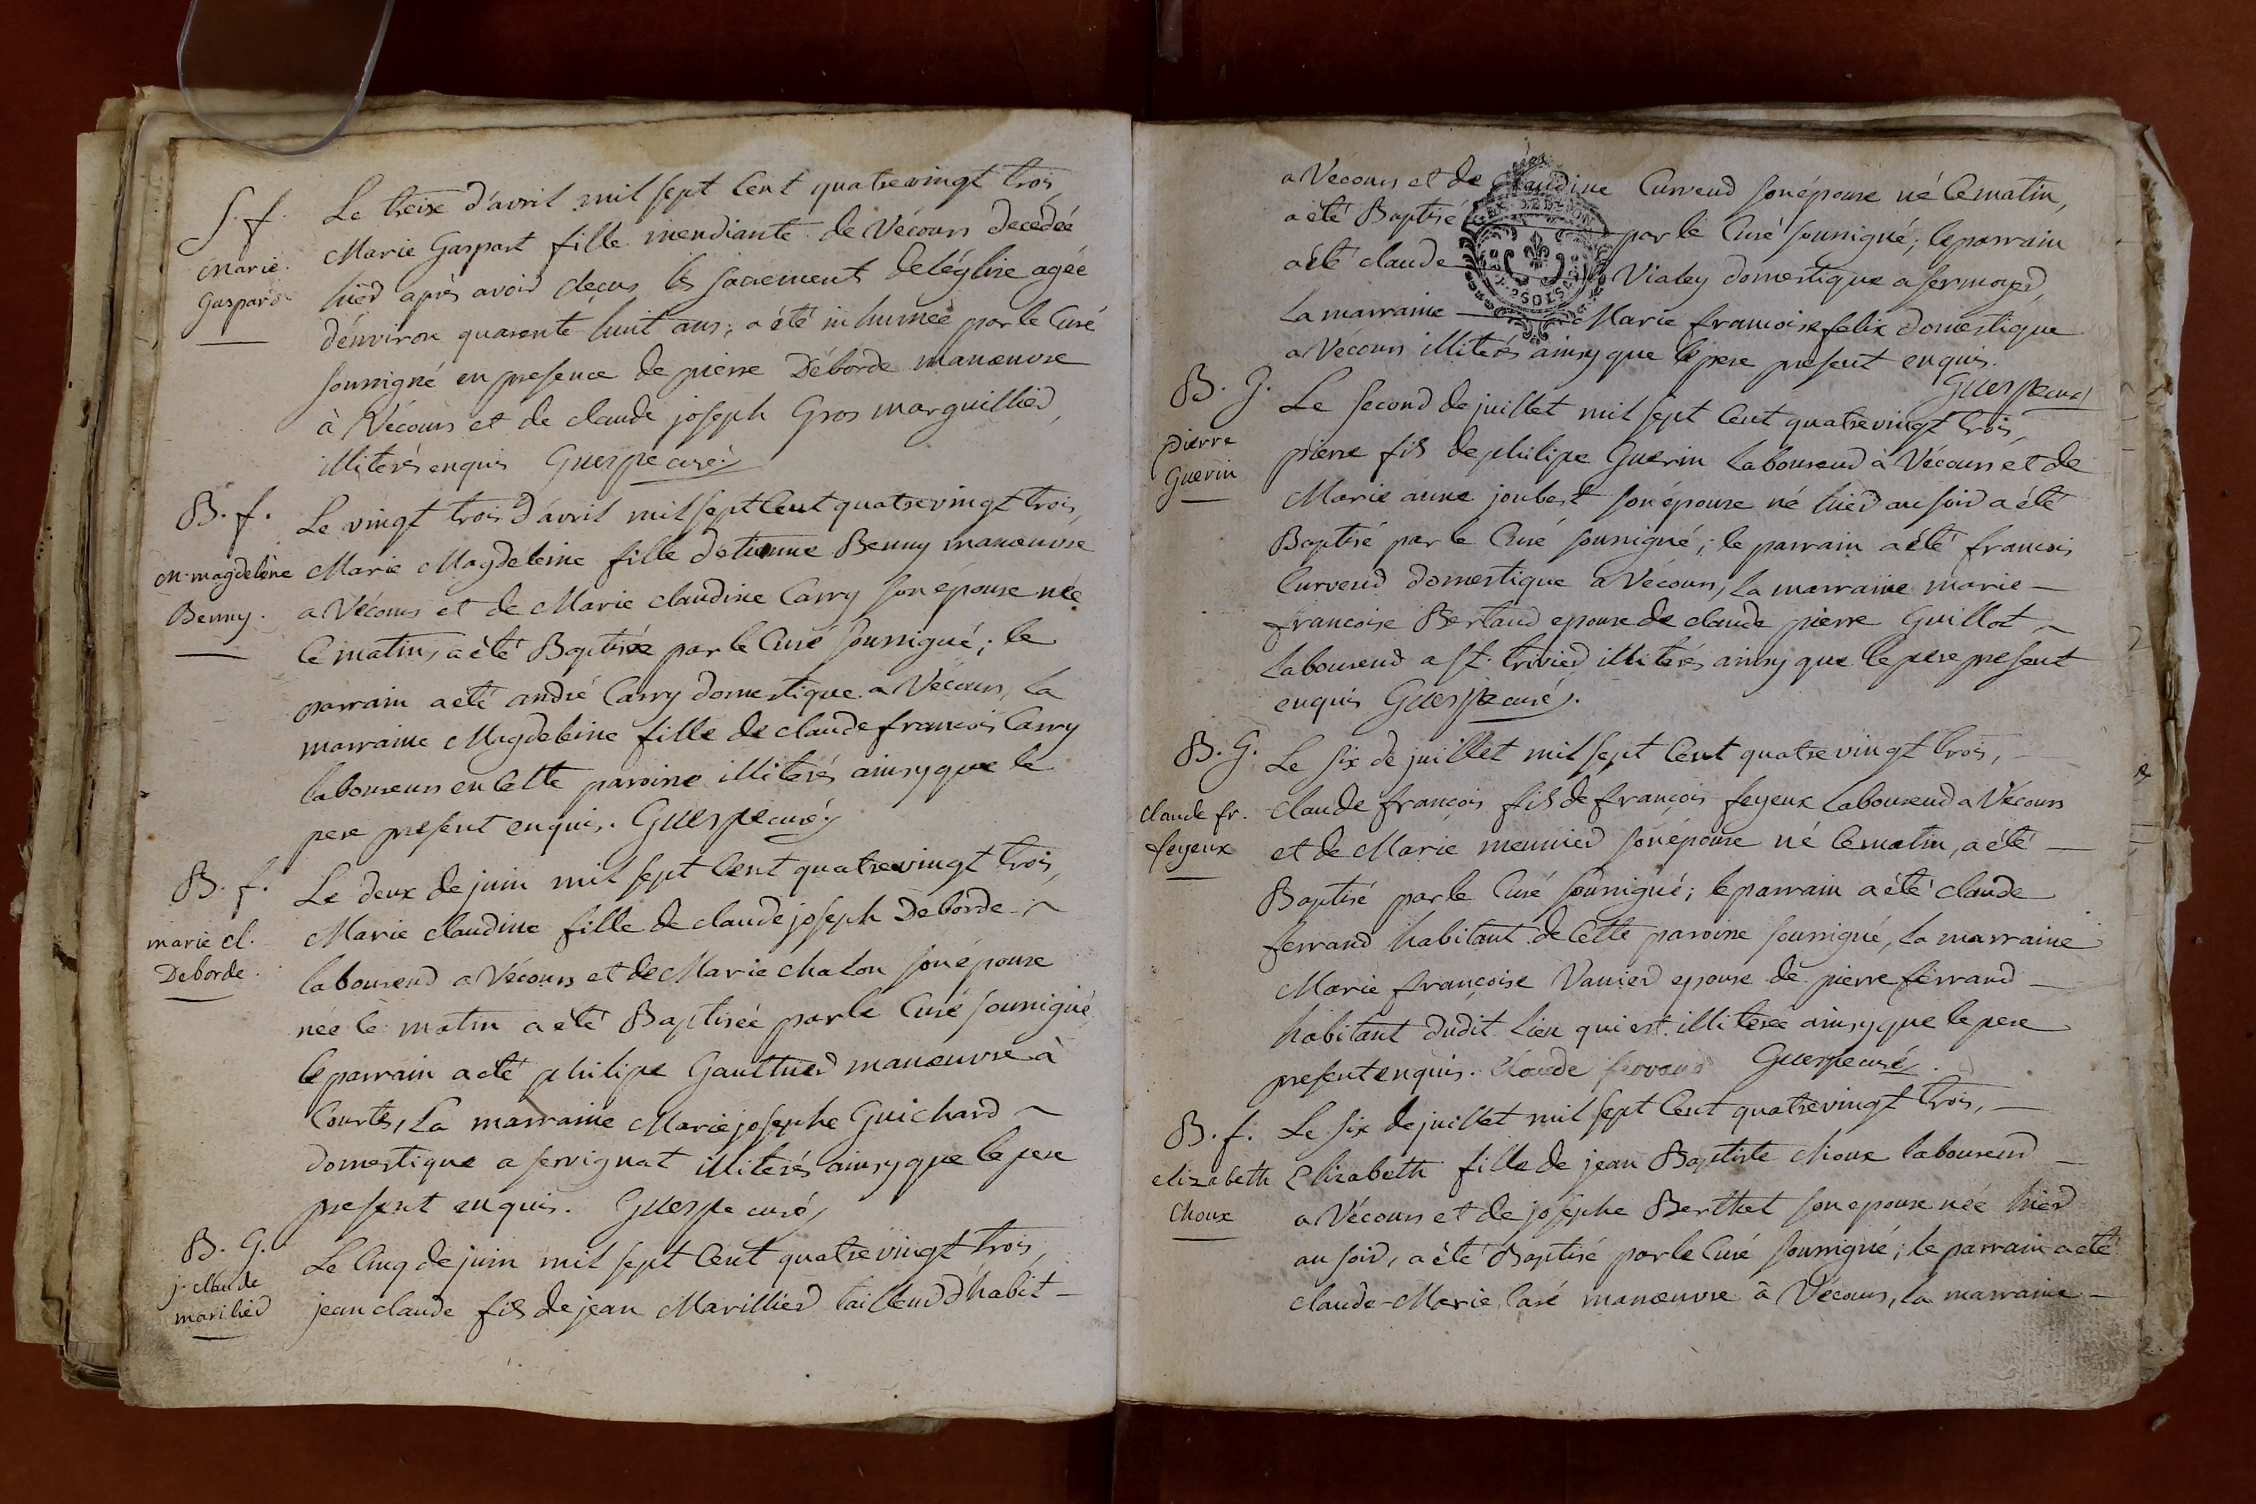 S. f.
Marie
Gaspard
Le treize d'avril mil sept Cent quatrevingt trois
Marie Gaspart fille mendiante de Vécours decedée
hier après avoir reçus les sacrements de léglise agée
d'environ quarente huit ans, a été inhumée par le Curé
soussigné en presence de pierre Déborde manœuvre
à Vécours et de claude joseph Gros marguillier,
illiterés enquis Guerpe curé
B. f.
M. magdelène
Benny.
Le vingt trois d'avril mil sept Cent quatrevingt trois,
Marie Magdeleine fille d'etienne Benny manœuvre
a Vécours et de Marie claudine Carry son épouse née
Ce matin, a été Baptisée par le Curé soussigné; le
parrain a été andré Carry domestique a Vécours, la
marraine Magdeleine fille de claude francois Carry
laboureur en Cette paroisse illiterés ainsy que le
pere present enquis. Guerpe curé
B. f.
marie cl.
Deborde.
Le deux de juin mil sept Cent quatrevingt trois,
Marie claudine fille de claude joseph Deborde
laboureur a Vécours et de Marie chalon son épouse
née le matin a été Baptisée par le Curé soussigné
le parrain a été philipe Gauthier manœuvre à
Courtes, La marraine Marie josephe Guichard
domestique a servignat illiterés ainsy que le pere
present enquis. Guerpe curé
B. G.
j. claude
marilier
Le Cinq de juin mil sept Cent quatrevingt trois,
jean claude fils de jean Marillier tailleur d'habit
a Vécours et de Claudine Curveur son épouse né Ce matin,
a été Baptisé par le Curé soussigné; le parrain
a été claude Vialey domestique a sermoyer,
La marraine Marie francoise felix domestique
a Vécours illiterés ainsy que le pere present enquis.
Guerpe curé
B. G.
pierre
Guerin
Le second de juillet mil sept Cent quatrevingt trois,
pierre fils de philipe Guerin Laboureur à Vécours et de
Marie anne joubert son épouse né hier au soir a été
Baptisé par le Curé soussigné; le parrain a été francois
Curveur domestique a Vécours, La marraine marie
francoise Bertaud epouse de claude pierre Guillot
Laboureur a st. trivier illiterés ainsy que le pere present
enquis Guerpe curé.
B. G.
claude fr.
feyeux
Le six de juillet mil sept Cent quatrevingt trois,
claude françois fils de françois feyeux Laboureur a Vécours
et de Marie meunier son épouse né Ce matin, a été
Baptisé par le Curé soussigné; le parrain a été claude
ferrand habitant de Cette paroisse soussigné, la marraine
Marie françoise Vanier epouse de pierre ferrand
habitant dudit Lieu qui est illiterée ainsy que le pere
present enquis. Claude ferrand Guerpe curé.
B. f.
elizabeth
Choux
Le six de juillet mil sept Cent quatrevingt trois,
Elizabeth fille de jean Baptiste choux laboureur
a Vécours et de josephe Berthet son epouse née hier
au soir, a été Baptisé par le Curé soussigné; le parrain a été
claude-Marie Carré manœuvre à Vécours, la marraine